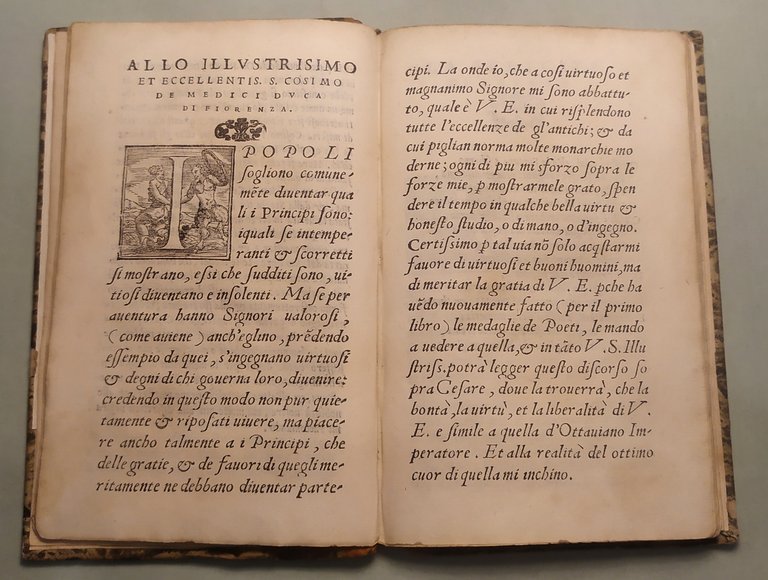 ALLO ILLVSTRISIMO
ET ECCELLENTIS. S. COSIMO
DE MEDICI DVCA
DI FIORENZA.
I POPOLI
sogliono comune-
mẽte diuentar qua
li i Principi sono:
iquali se intempe-
ranti & scorretti
si mostrano, essi che sudditi sono, ui-
tiosi diuentano e insolenti. Ma se per
auentura hanno Signori ualorosi,
(come auiene) anch'eglino, prẽdendo
essempio da quei, s'ingegnano uirtuosi
& degni di chi gouerna loro, diuenire:
credendo in questo modo non pur quie-
tamente & riposati uiuere, ma piace-
re ancho talmente a i Principi, che
delle gratie, & de fauori di quegli me-
ritamente ne debbano diuentar parte-
cipi. La onde io, che a cosi uirtuoso et
magnanimo Signore mi sono abbattu-
to, quale è V. E. in cui risplendono
tutte l'eccellenze de gl'antichi; & da
cui piglian norma molte monarchie mo
derne; ogni di piu mi sforzo sopra le
forze mie, ꝑ mostrarmele grato, spen
dere il tempo in qualche bella uirtu &
honesto studio, o di mano, o d'ingegno.
Certissimo ꝑ tal uia nõ solo acq̃starmi
fauore di uirtuosi et buoni huomini, ma
di meritar la gratia di V. E. ꝑche ha
uẽdo nuouamente fatto (per il primo
libro) le medaglie de Poeti, le mando
a uedere a quella, & in tãto V. S. Illu
striss. potrà legger questo discorso so
pra Cesare, doue la trouerrà, che la
bontà, la uirtù, et la liberalità di V.
E. e simile a quella d'Ottauiano Im-
peratore. Et alla realità del ottimo
cuor di quella mi inchino.